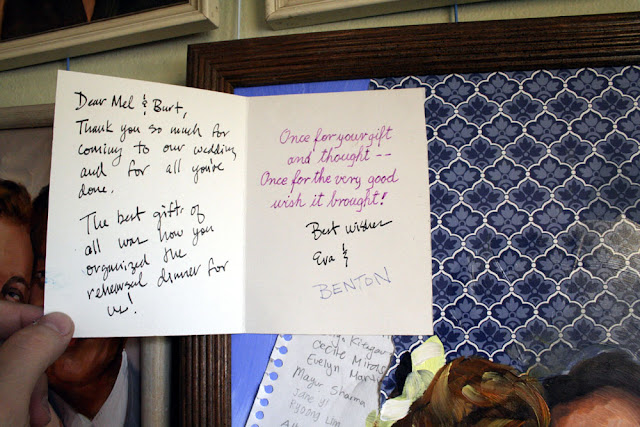 Dear Mel & Burt,
Thank you so much for
coming to our wedding
and for all you've
done.
The best gift of
all was how you
organized the
rehearsal dinner for
us!
Once for your gift
and thought --
Once for the very good
wish it brought!
Best wishes
Eva &
BENTON
Cecile
Evelyn
Mayur Sharma
Jane